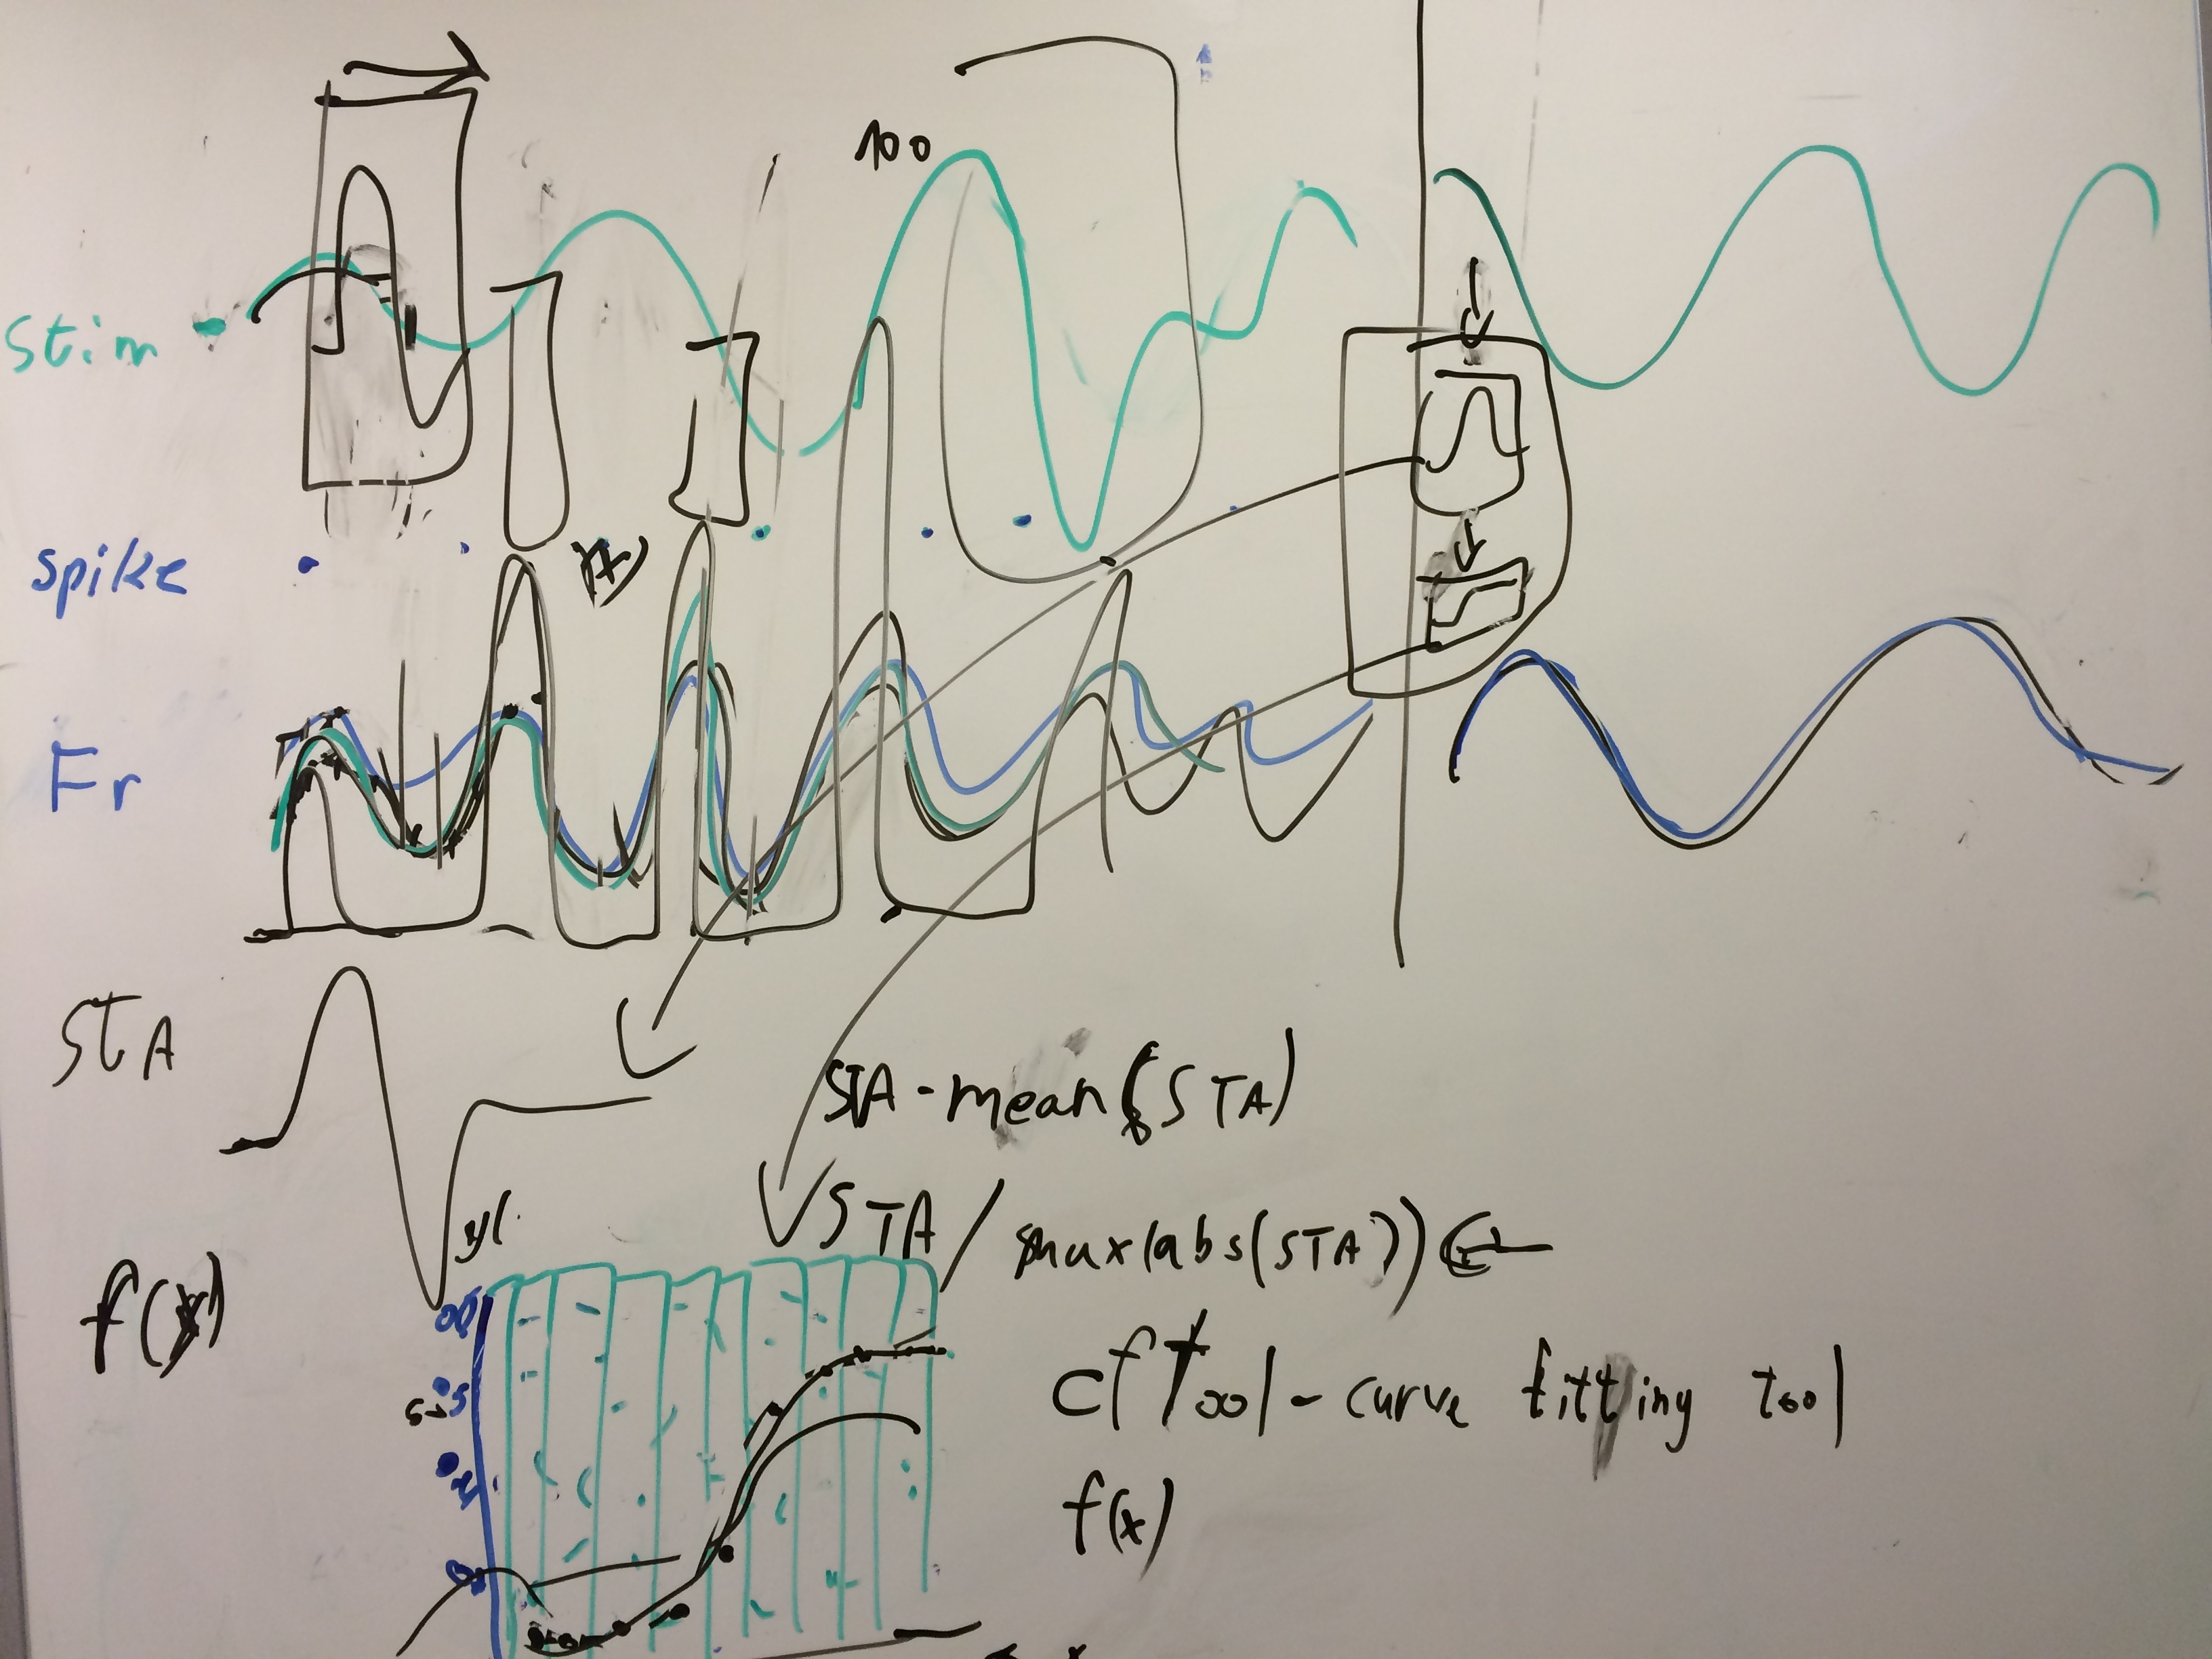 100
stim
spike
Fr
STA
STA - mean(STA)
STA / max(abs(STA))
f(x)
cftool - curve fitting tool
f(x)